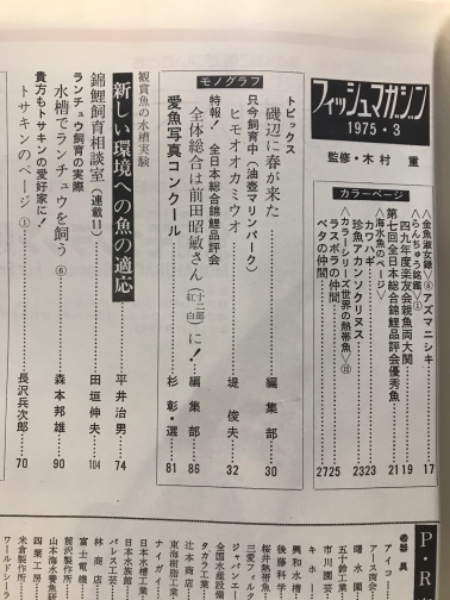 フィッシュマガジン
1975・3
監修・木村 重
カラーページ
〈金魚淑女録⑧〉アズマニシキ……17
〈らんちゅう銘鑑〉①
四九年度楽友会親魚両大関……19
第七回全日本総合錦鯉品評会優秀魚……21
〈海水魚のページ〉
カワハギ……23
珍魚アカンソクリヌス……23
〈カラーシリーズ世界の熱帯魚〉⑫
ラスボラの仲間……25
ベタの仲間……27
モノグラフ
トピックス
磯辺に春が来た……編集部…30
只今飼育中（油壺マリンパーク）
ヒモオオカミウオ……堤 俊夫…32
特報！ 全日本総合錦鯉品評会
全体総合は前田昭敏さん（十二部紅白）に！…編集部…86
愛魚写真コンクール……杉 彰・選…81
観賞魚の水槽実験
新しい環境への魚の適応……平井治男…74
錦鯉飼育相談室（連載11）……田垣伸夫…104
ランチュウ飼育の実際
水槽でランチュウを飼う⑥……森本邦雄…90
貴方もトサキンの愛好家に！
トサキンのページ①……長沢兵次郎…70
P・R
●器具
アイコー
アース商会
曙水園
五十鈴工業
市川園芸
キホー
興和水槽
後藤科学
桜井熱帯魚
三愛フィルタ
ジャパンエ
全国水産設備
タカラ工業
辻本商店
東海樹脂工業
ナイガイ
日本水槽工業
日本水族館
パレス工芸
林商店
富士電機
前沢製作所
山本海水養魚研
四葉工房
米倉製作所
ワールドシーラ